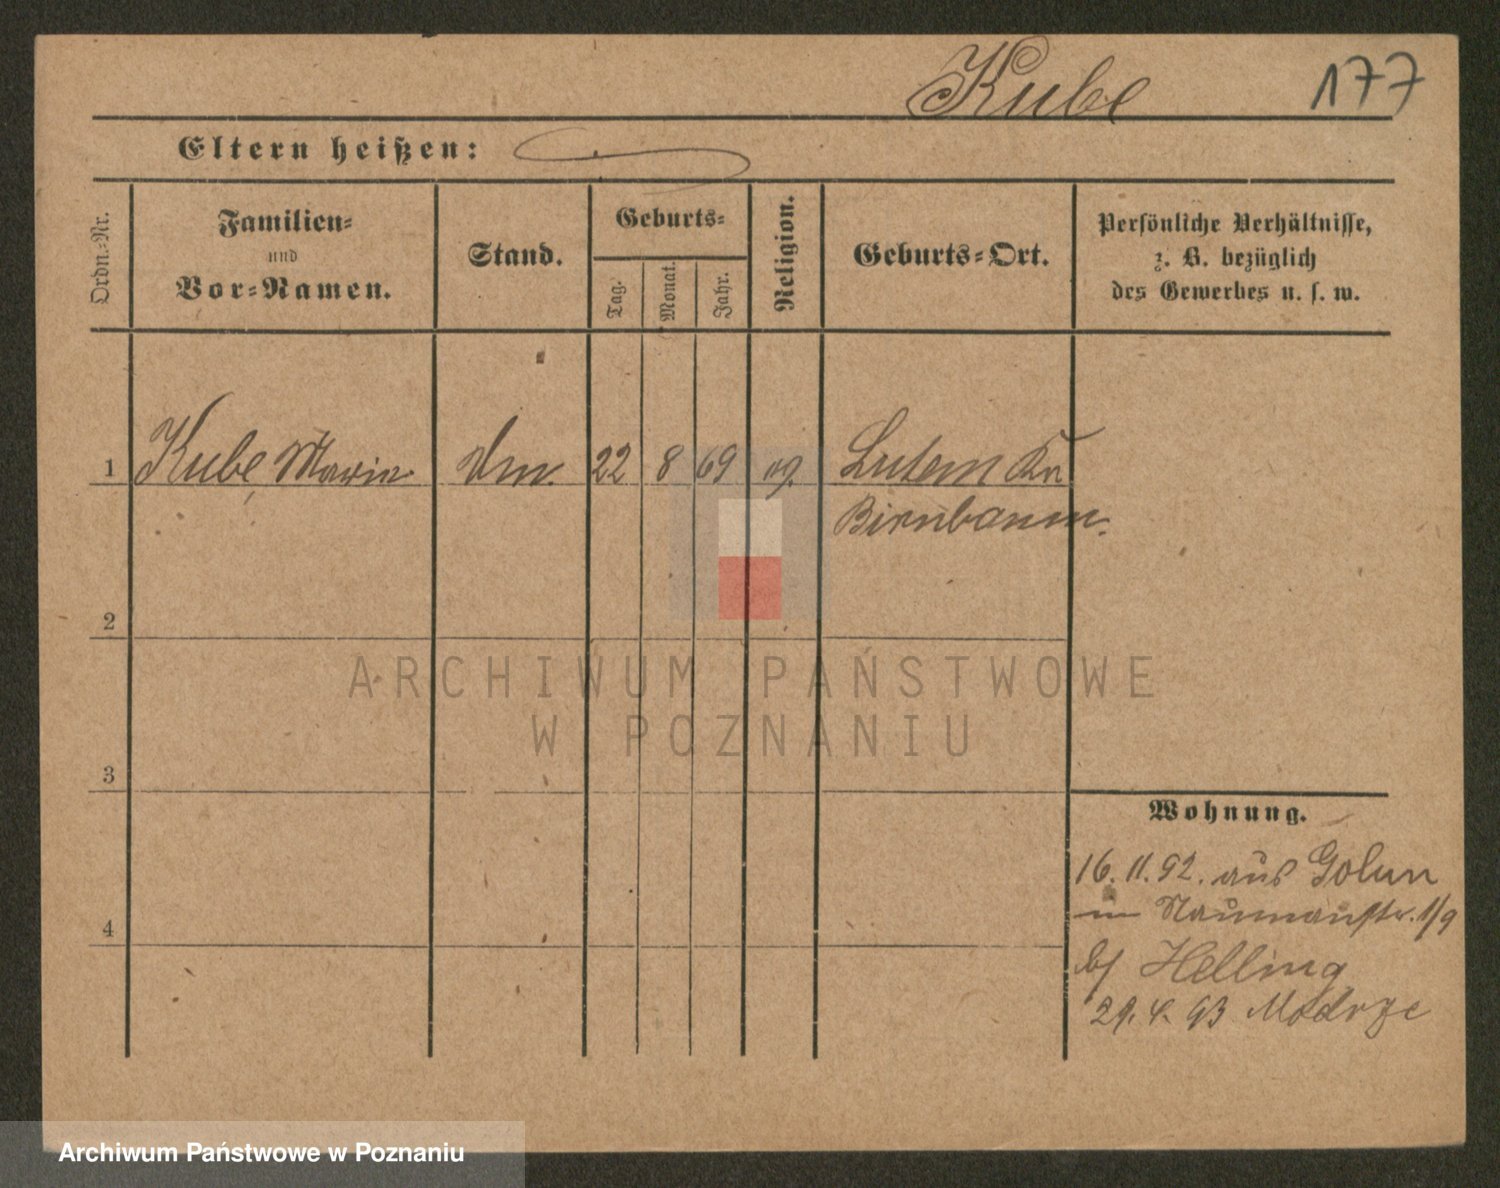 Kube 177
Eltern heißen:
Ordn.-Nr.
Familien-
und
Vor-Namen.
Stand.
Geburts-
Tag.
Monat.
Jahr.
Religion.
Geburts-Ort.
Persönliche Verhältnisse,
z. B. bezüglich
des Gewerbes u. s. w.
1 Kube, Maria 22 8 69 Lutom Kr
Birnbaum.
2
3
4
Wohnung.
16. 11. 92. aus Golun
in Naumannstr. 1/9
b/ Helling
29. 4. 93 Modrze
ARCHIWUM PAŃSTWOWE
W POZNANIU
Archiwum Państwowe w Poznaniu